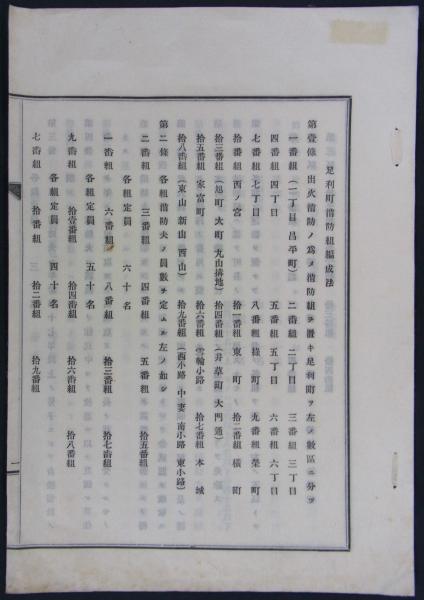 足利町消防組編成法
第壹條 出火消防ノ爲メ消防組ヲ置キ足利町ヲ左ノ數區ニ分ツ
一番組(一丁目 昌平町) 二番組 二丁目 三番組 三丁目
四番組 四丁目 五番組 五丁目 六番組 六丁目
七番組 七丁目 八番組 綠町 九番組 榮町
拾番組 西ノ宮 拾一番組 東町 拾二番組 橫町
拾三番組(旭町 大町 九山搆地) 拾四番組(井草町 大門通)
拾五番組 家富町 拾六番組 雪輪小路 拾七番組 本城
拾八番組(東山 新山 西山) 拾九番組(西小路 中妻 南小路 東小路)
第二條 各組消防夫ノ員數ヲ定ムル左ノ如シ
二番組 三番組 四番組 五番組 拾五番組
各組定員 六十名
一番組 六番組 八番組 拾三番組 拾七番組
各組定員 五十名
九番組 拾壹番組 拾四番組 拾六番組 拾八番組
各組定員 四十名
七番組 拾番組 拾二番組 拾九番組
一